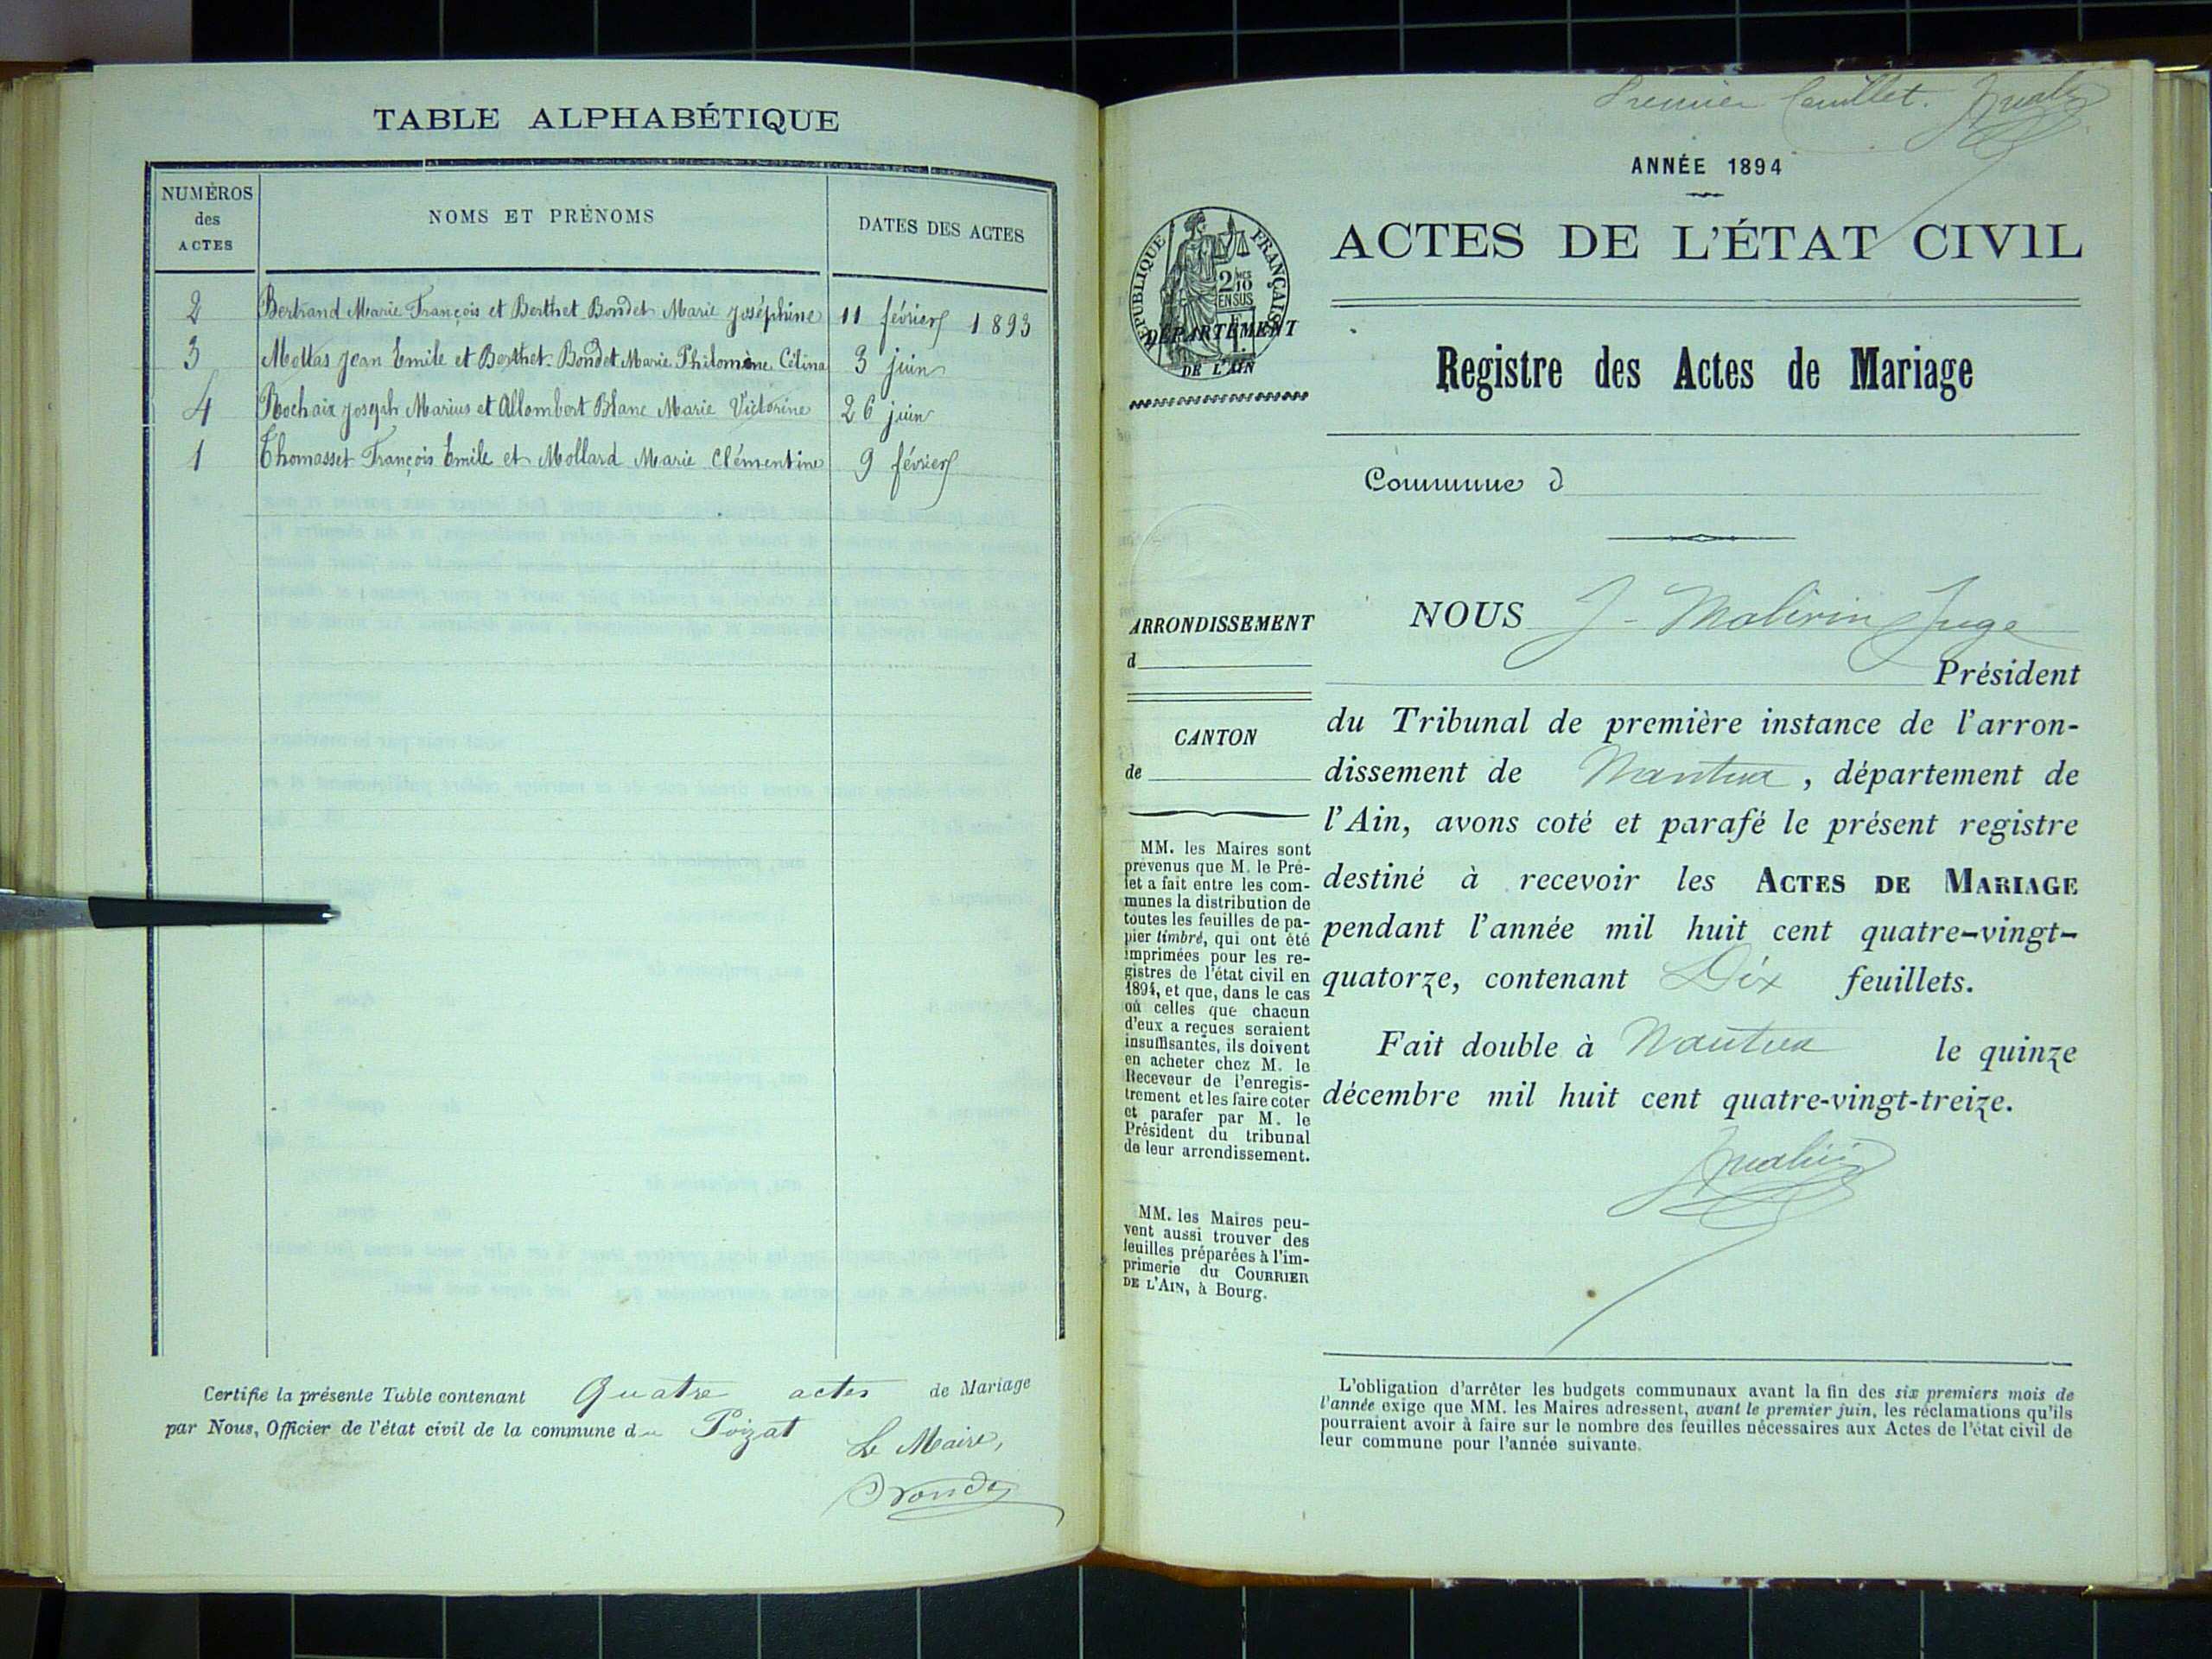 TABLE ALPHABÉTIQUE
NUMÉROS
des
ACTES
NOMS ET PRÉNOMS
DATES DES ACTES
2 Bertrand Marie François et Berthet Bondet Marie Joséphine 11 février 1893
3 Mottas Jean Emile et Berthet-Bondet Marie Philomène Célina 3 juin
4 Rochaix Joseph Marius et Allombert Blanc Marie Victorine 26 juin
1 Thomasset François Emile et Mollard Marie Clémentine 9 février
Certifie la présente Table contenant Quatre actes de Mariage
par Nous, Officier de l'état civil de la commune du Poizat
Le Maire,
Premier feuillet.
ANNÉE 1894
ACTES DE L'ÉTAT CIVIL
RÉPUBLIQUE FRANÇAISE
2/10 EN SUS
DÉPARTEMENT
DE L'AIN
Registre des Actes de Mariage
Commune d
ARRONDISSEMENT
d
CANTON
de
MM. les Maires sont
prévenus que M. le Pré-
fet a fait entre les com-
munes la distribution de
toutes les feuilles de pa-
pier timbré, qui ont été
imprimées pour les re-
gistres de l'état civil en
1894, et que, dans le cas
où celles que chacun
d'eux a reçues seraient
insuffisantes, ils doivent
en acheter chez M. le
Receveur de l'enregis-
trement et les faire coter
et parafer par M. le
Président du tribunal
de leur arrondissement.
MM. les Maires peu-
vent aussi trouver des
feuilles préparées à l'im-
primerie du COURRIER
DE L'AIN, à Bourg.
NOUS J. Juge
Président
du Tribunal de première instance de l'arron-
dissement de Nantua, département de
l'Ain, avons coté et parafé le présent registre
destiné à recevoir les ACTES DE MARIAGE
pendant l'année mil huit cent quatre-vingt-
quatorze, contenant Dix feuillets.
Fait double à Nantua le quinze
décembre mil huit cent quatre-vingt-treize.
L'obligation d'arrêter les budgets communaux avant la fin des six premiers mois de
l'année exige que MM. les Maires adressent, avant le premier juin, les réclamations qu'ils
pourraient avoir à faire sur le nombre des feuilles nécessaires aux Actes de l'état civil de
leur commune pour l'année suivante.